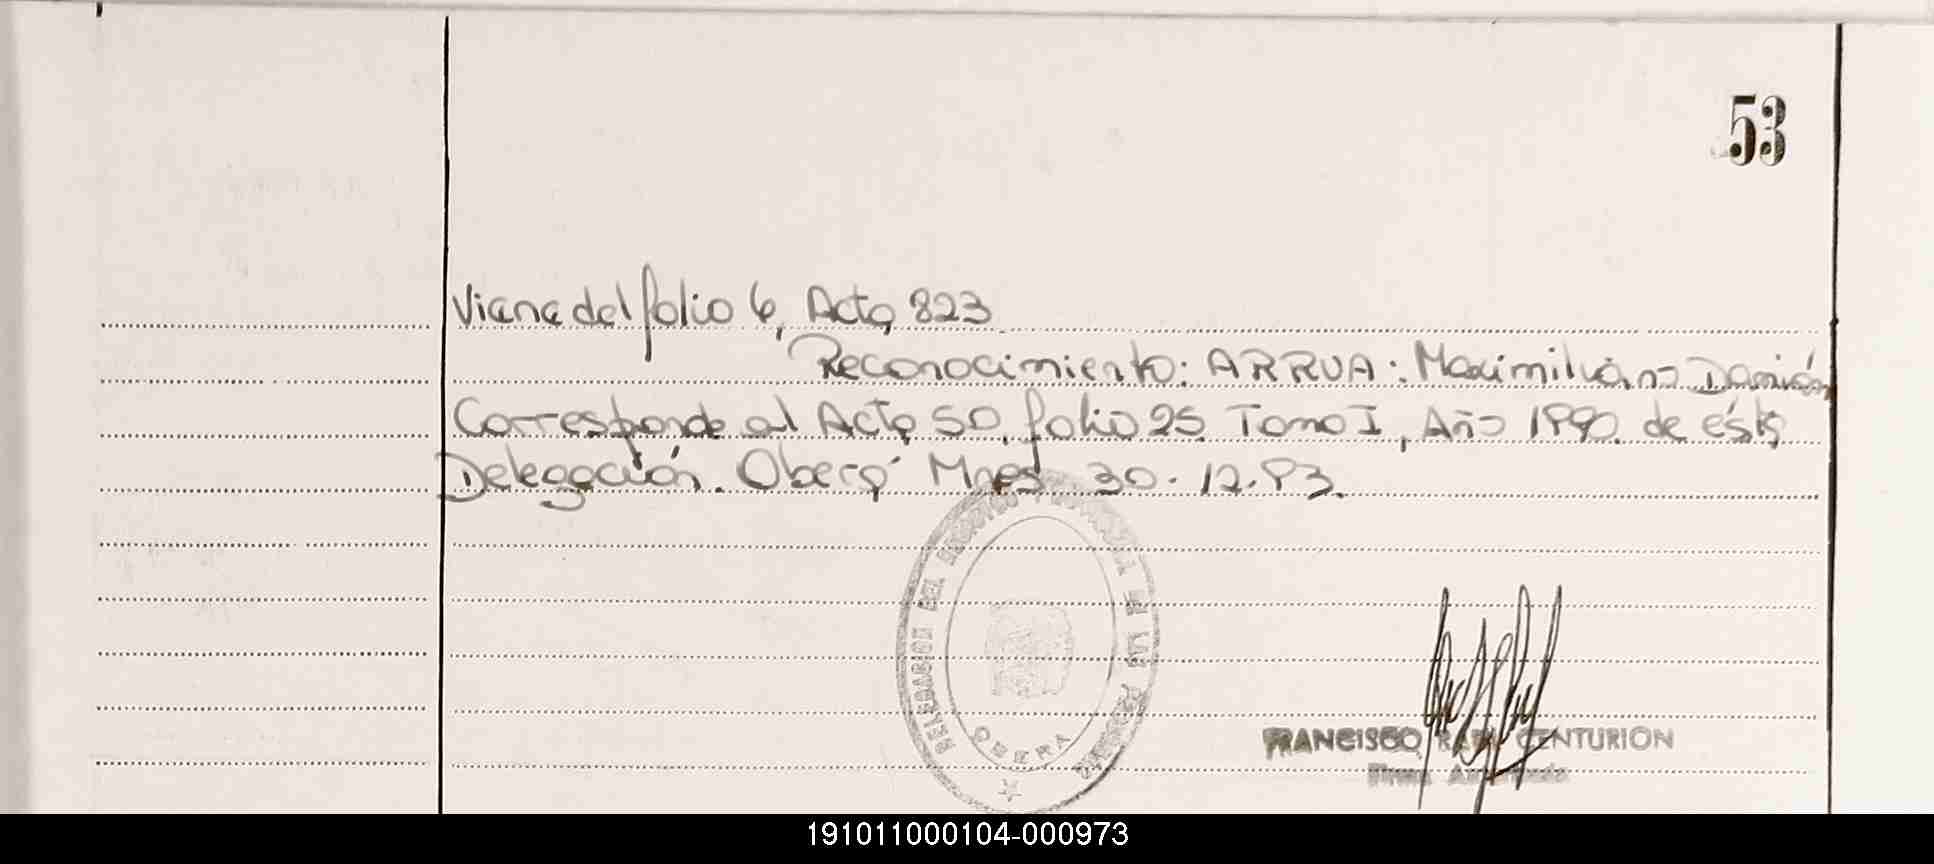 53
Viene del folio 6, Acta 823
Reconocimiento: ARRUA: Maximiliano Damián
Corresponde al Acta 50, folio 25 Tomo I, Año 1990. de ésta
Delegación. Oberá Mnes 30.12.93.
DELEGACION DEL REGISTRO PROVINCIAL DE LAS PERSONAS
OBERA
FRANCISCO CENTURION
Firma Autorizada
191011000104-000973